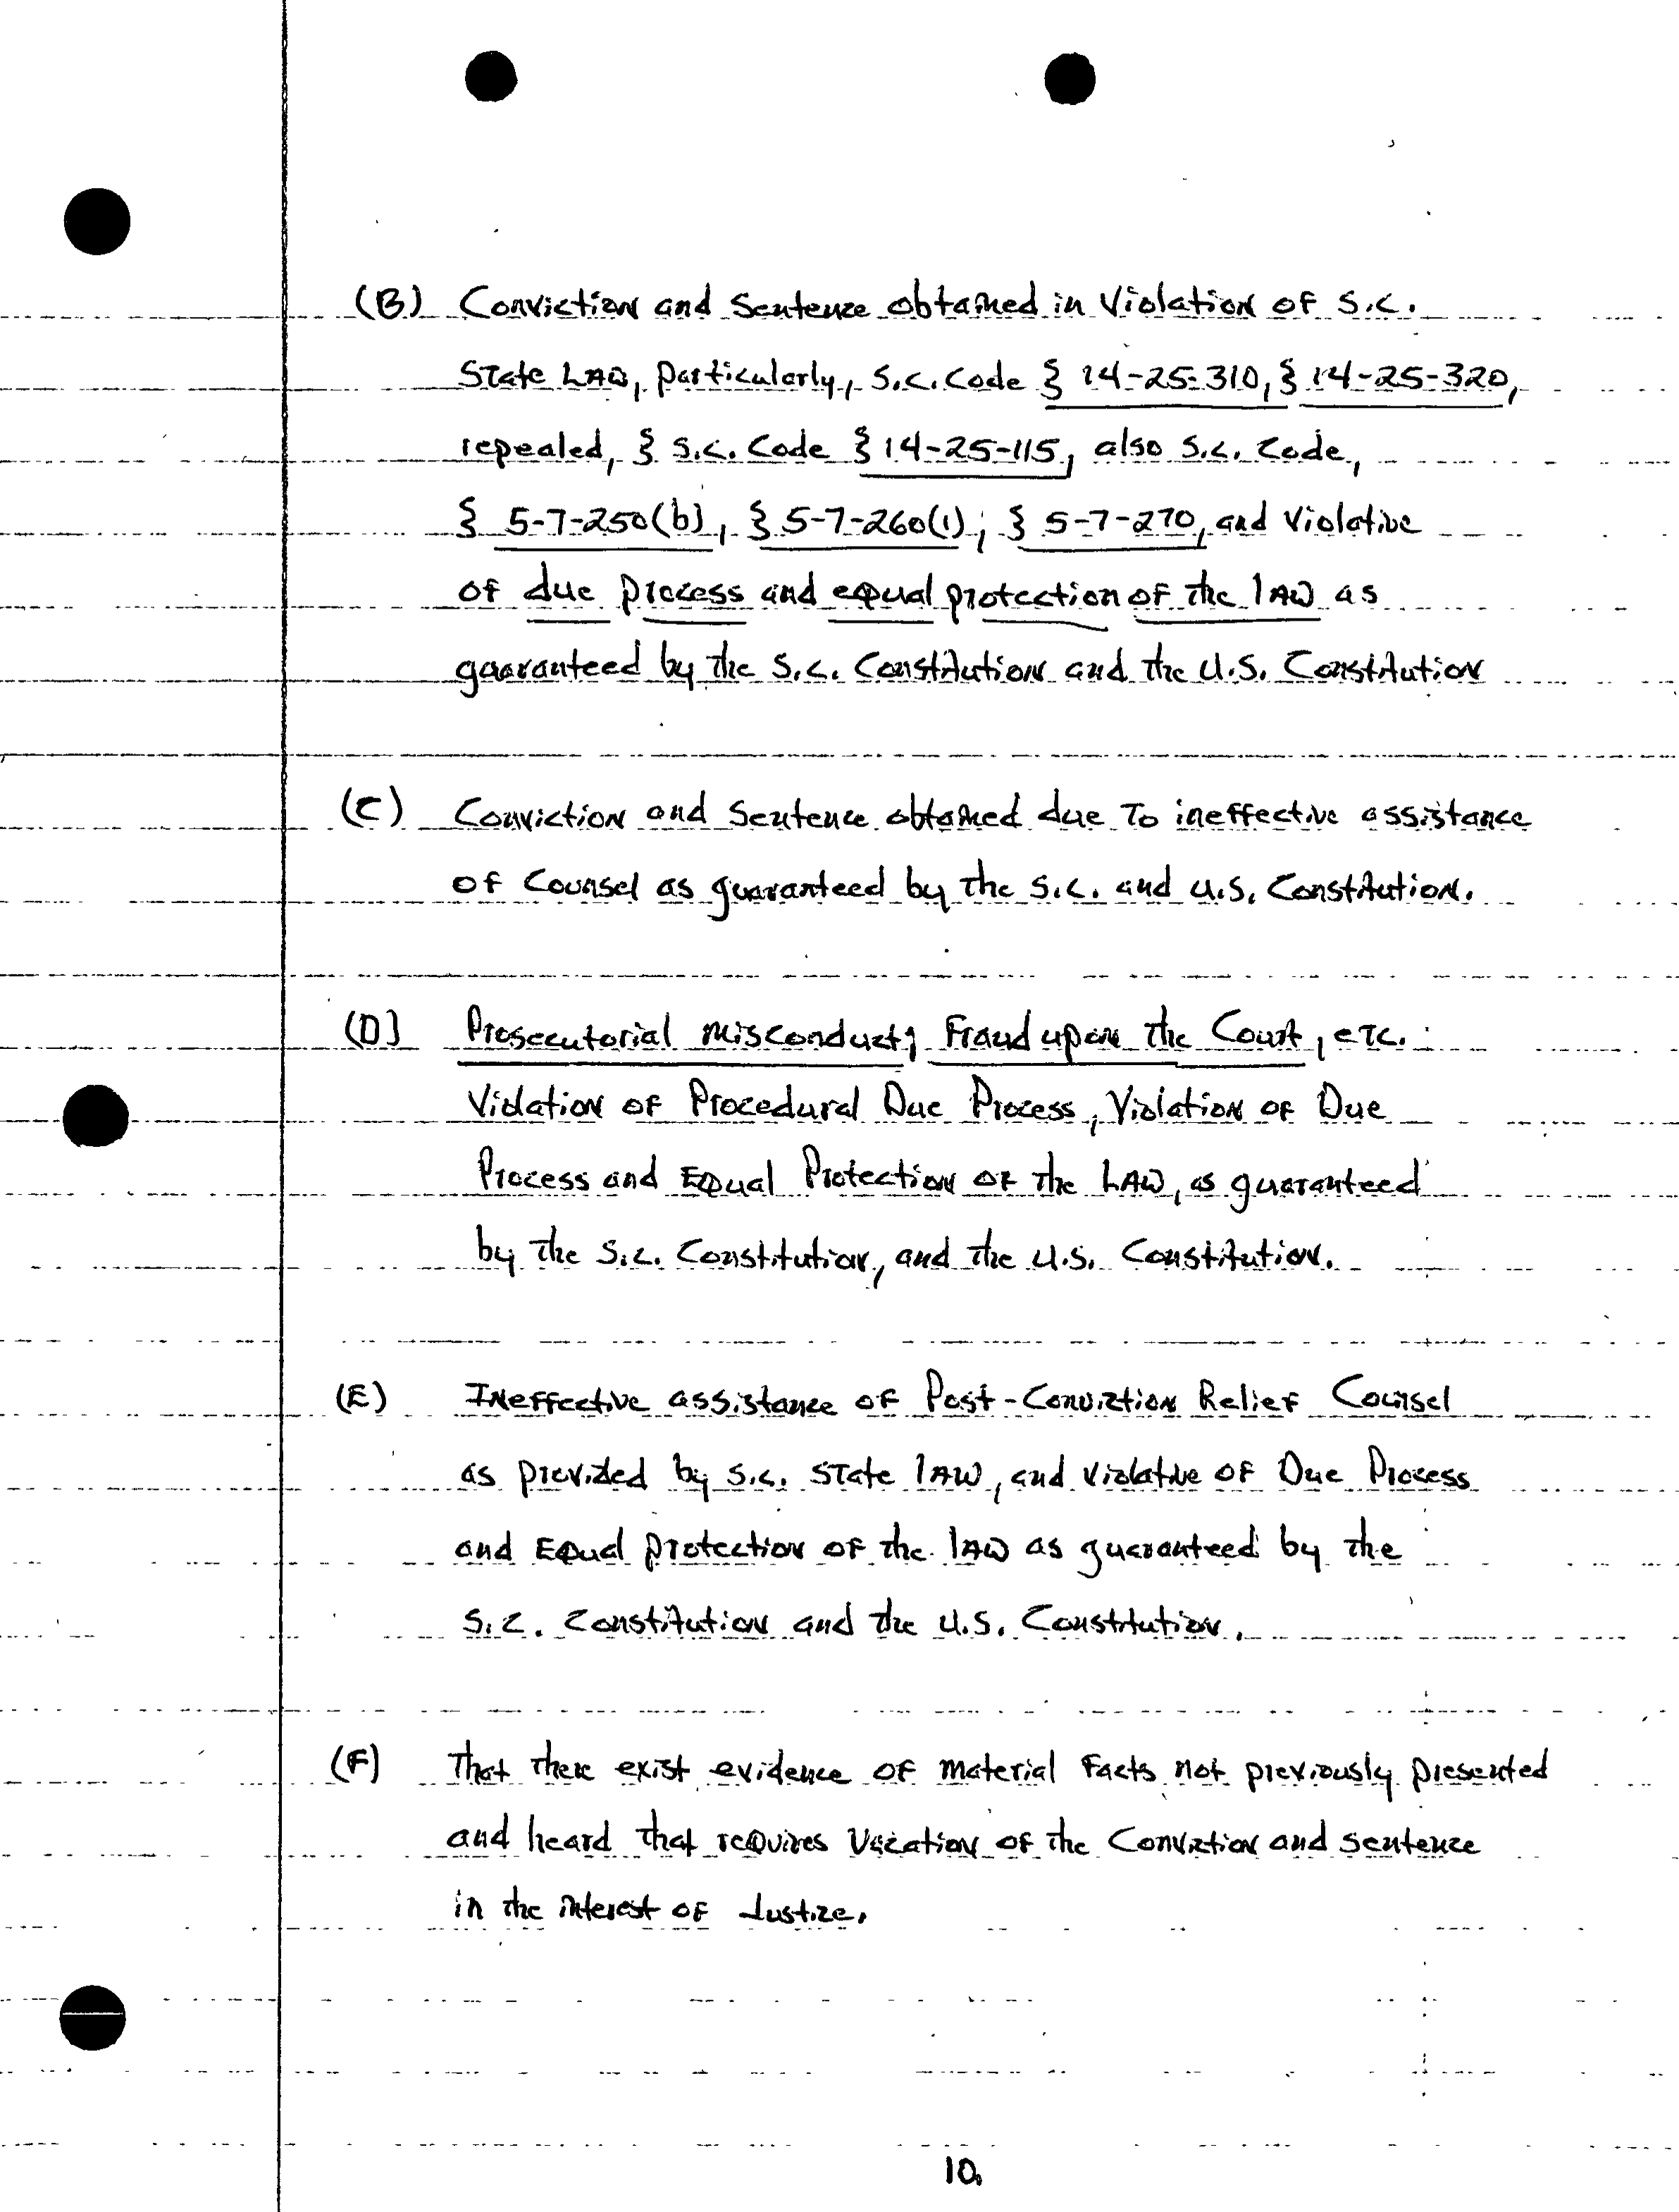 (B) Conviction and Sentence obtained in Violation of S.C.
State LAW, particularly, S.C. Code § 14-25-310, § 14-25-320,
repealed, § S.C. Code § 14-25-115, also S.C. Code,
§ 5-7-250(b), § 5-7-260(1); § 5-7-270, and Violative
of due process and equal protection of the lAW as
guaranteed by the S.C. Constitution and the U.S. Constitution
(C) Conviction and Sentence obtained due To ineffective assistance
of Counsel as guaranteed by the S.C. and U.S. Constitution.
(D) Prosecutorial misconduct; Fraud upon the Court, etc.
Violation of Procedural Due Process, Violation of Due
Process and Equal Protection of the LAW, as guaranteed
by the S.C. Constitution, and the U.S. Constitution.
(E) Ineffective assistance of Post-Conviction Relief Counsel
as provided by S.C. State lAW, and violative of Due Process
and Equal protection of the lAW as guaranteed by the
S.C. Constitution and the U.S. Constitution.
(F) That there exist evidence of material Facts not previously presented
and heard that requires Vacation of the Conviction and sentence
in the interest of Justice.
10.